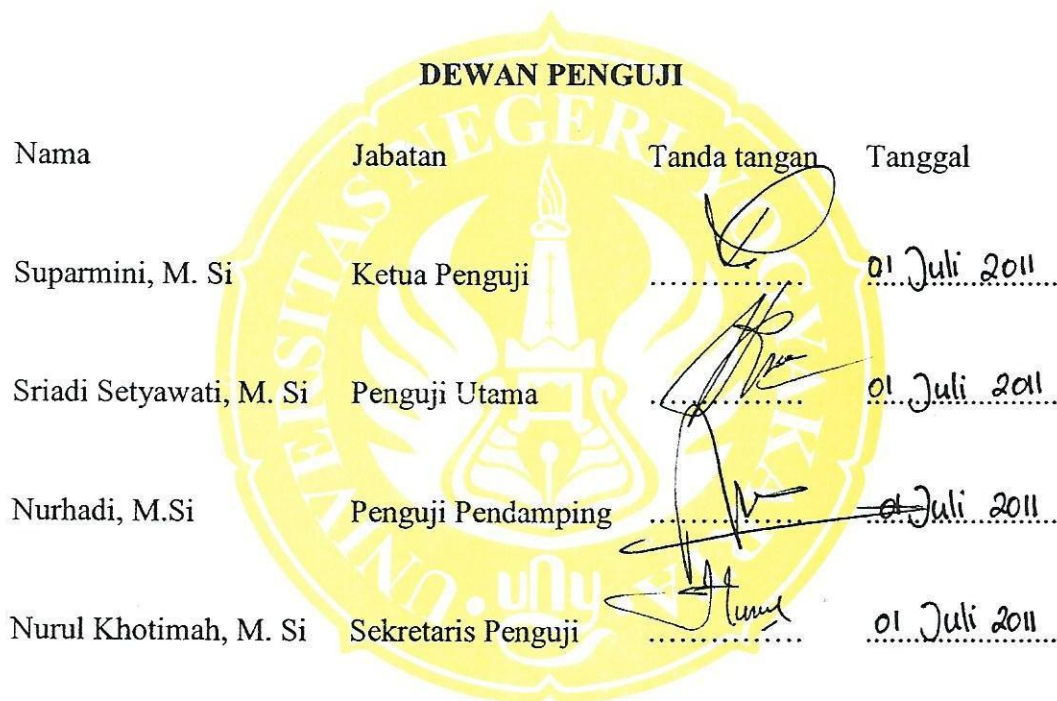 DEWAN PENGUJI
Nama Jabatan Tanda tangan Tanggal
Suparmini, M. Si Ketua Penguji .............. 01 Juli 2011
Sriadi Setyawati, M. Si Penguji Utama .............. 01 Juli 2011
Nurhadi, M.Si Penguji Pendamping .............. 01 Juli 2011
Nurul Khotimah, M. Si Sekretaris Penguji .............. 01 Juli 2011
UNIVERSITAS NEGERI YOGYAKARTA
uny